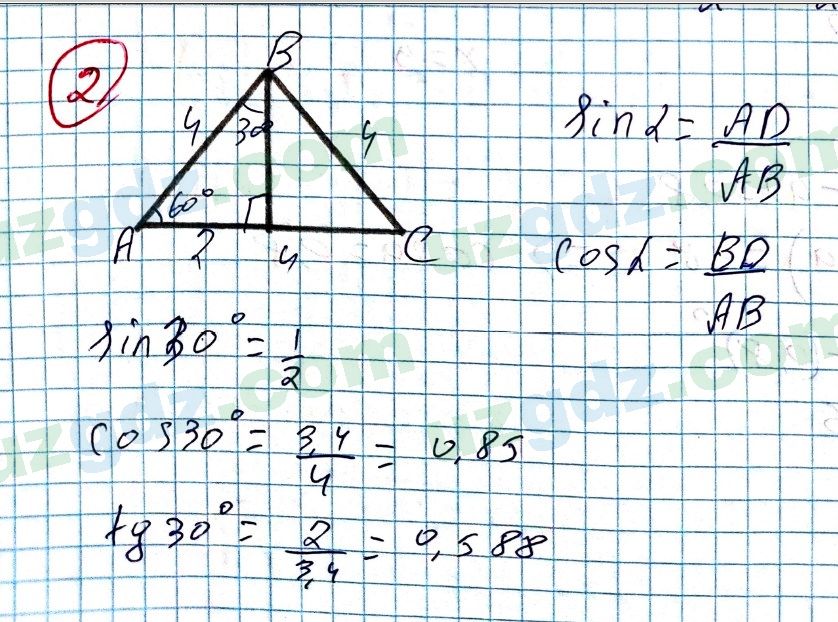 2
B
4 30 4
60°
A 2 4 C
sin α = AD/AB
cos α = BD/AB
sin 30° = 1/2
cos 30° = 3,4/4 = 0,85
tg 30° = 2/3,4 = 0,588
uzgdz.com
uzgdz.com
uzgdz.com
uzgdz.com